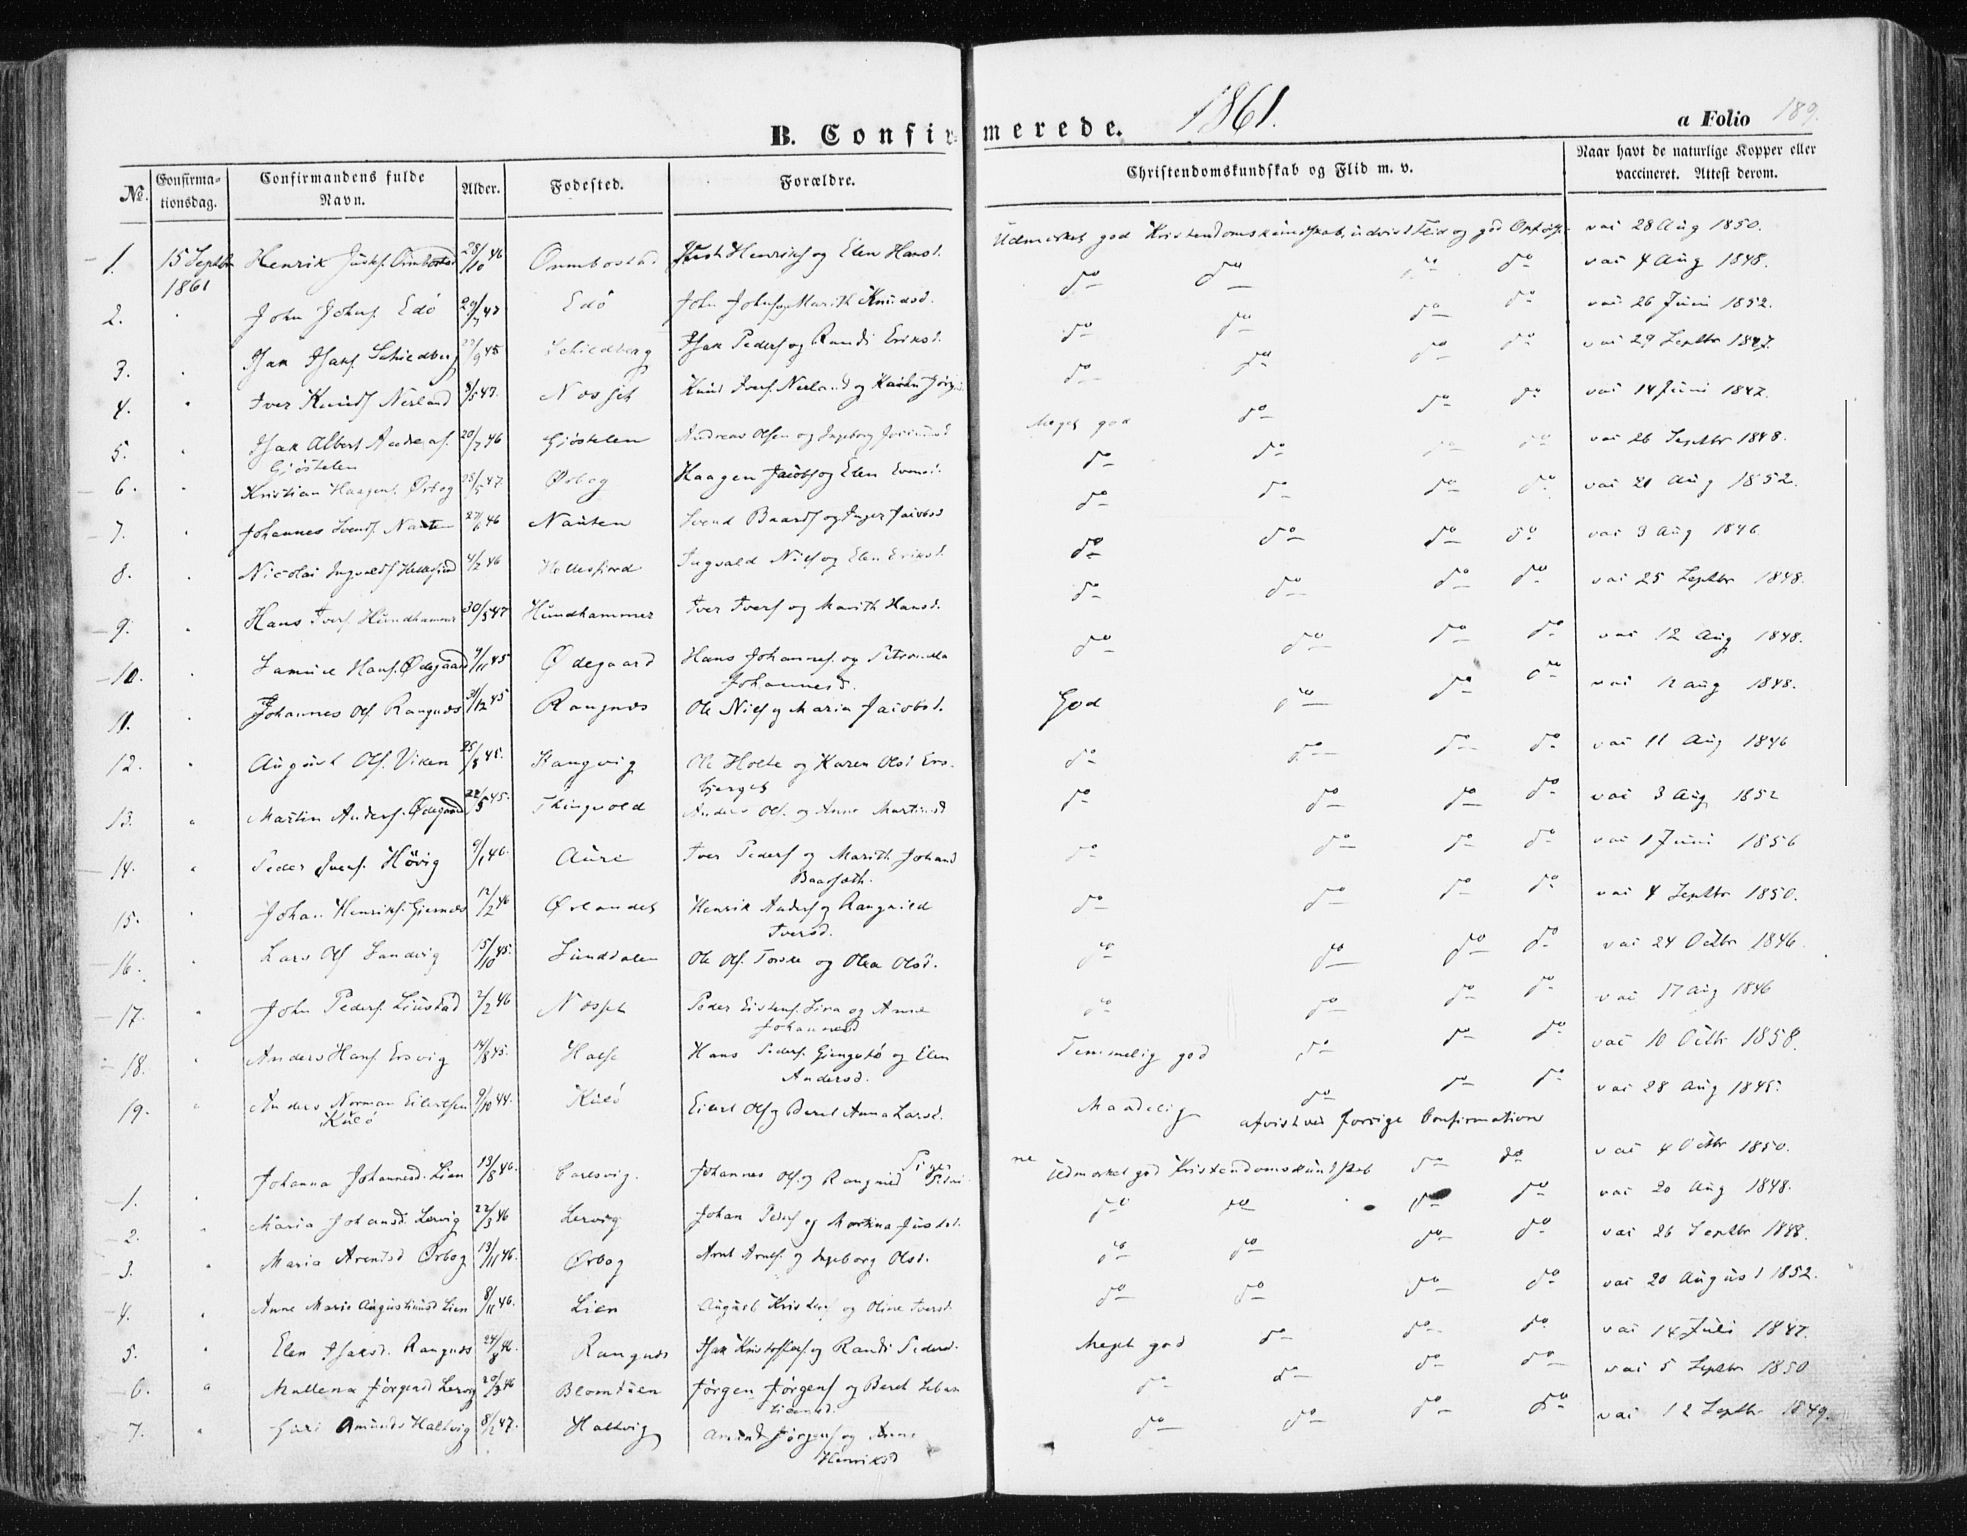 B. Confirmerede. 1861. a Folio 189.
No. Confirmationsdag. Confirmandens fulde Navn. Alder. Fødested. Forældre. Christendomskundskab og Flid m. v. Naar havt de naturlige Kopper eller vaccineret. Attest derom.
1. 15 Septbr 1861 Henrik 28/10 46 Hendriks og Elen Hansd. Udmerket god Kristendomskundskab, udvist Flid og god vac 28 Aug 1850.
2. " John Johns. Edö 29/7 47 Edö John Johns og Marith Knudsd. do do do do vac 4 Aug 1848.
3. " Isak Isaks. Schiedberg 45 Schiedberg Isak Peders og Randi Eriksd. do do do do vac 26 Juni 1852.
4. " Iver Knuds Nerland 8/5 47. Nosset Knud Ivers. Nerland og do do do do vac 29 Septbr 1847.
5. " Isak Albert Andreas. Gjöstelen 20/7 46 Gjöstelen Andreas Olsen og Ingeborg Meget god do do do vac 14 Juni 1847.
6. " Kristian Haagens. Ørbog 25/5 47. Ørbog Haagen Jacobs og Elen Evensd. do do do do vac 26 Septbr 1848.
7. " Johannes Svends Nauten 46 Nauten Svend Baards og Inger Jacobsd do do do do vac 21 Aug 1852.
8. " Nicolai Ingvalds Hellesfiord 4/2 46 Hellesfiord Ingvald Niels og Elen Eriksd. do do do do vac 3 Aug 1846
9. " Hans Ivers Hundhammer 30/5 47 Hundhammer Iver Ivers og Marith Hansd. do do do do vac 25 Septbr 1848.
10. " Samuel Hans. Ødegaard 4/11 45 Ødegaard Hans Johannes. og Petronella Johannesd. do do do do vac 12 Aug 1848.
11. " Johannes Ols Rangnæs 31/12 45 Rangnæs Ole Niels og Maria Jacobsd. God do do do vac 12 aug 1848.
12. " August Ols. Viken 25/8 45. Stangvig Ole Holte og Karen Olsd do do do do vac 11 Aug 1846
13. " Martin Anders. Ødegaard 22/5 45. Thingvold Anders Ols. og Anne do do do do vac 3 Aug 1852
14. " Peder Ivers. Hövig 9/1 46. Aure Iver Peders og Marith do do do do vac 1 Juni 1856
15. " Johan Henriks. Giernæs 12/2 46 Ørlandet Henrik Anders og Rangnild Iversd. do do do do vac 4 Septbr 1850.
16. " Lars Ols Sandvig 15/10 45. Sunddalen Ole Ols. og Olea Olsd. do do do do vac 24 Octbr 1846.
17. " John Peders. Liustad 2/2 46 Nosset Peder og Anne Johannesd do do do do vac 17 Aug 1846
18. " Anders Hans Ersvig 14/8 45. Halse Hans Peders. og Elen Andersd. Temmelig god do do do vac 10 Octbr 1858.
19. " Anders Norman Eilertsen Kulö 9/10 44. Kulö Eilert Ols og Beret Anna Larsd. Maadelig do do do vac 28 Aug 1845.
afvist ved forrige Confirmation
1. " Johanna Johannesd. Lien 13/8 46. Carlsvig. Johannes Ols. og Rangnild Udmerket god Kristendomskundskab do do vac 4 Octbr 1850.
2. " Maria Johansd. Lervig 22/3 46 Lervig Johan Peders og Martina do do do do vac 20 Aug 1848.
3. " Maria Arentsd Ørbog 13/11 46. Ørbog Arnt Arnts. og Ingeborg Olsd. do do do do vac 26 Septbr 1848.
4. " Anne Maria Augustinusd Lien 8/11 46. Lien August og Oline Iversd. do do do do vac 20 August 1852.
5. " Elen Isaksd. Rangnæs 24/8 46. Rangnæs Isak Kristoffers og Randi Pedersd. Meget god do do do vac 14 Juli 1847.
6. " Mallena Jörgensd Lervig 20/3 46 Blomtuen Jörgen Jörgens og Beret do do do do vac 5 Septbr 1850
7. " Guri Amunds Haltvig 8/2 47. Haltvig Amund Jörgens og Anne Henriksd do do do do vac 12 Septbr 1849.